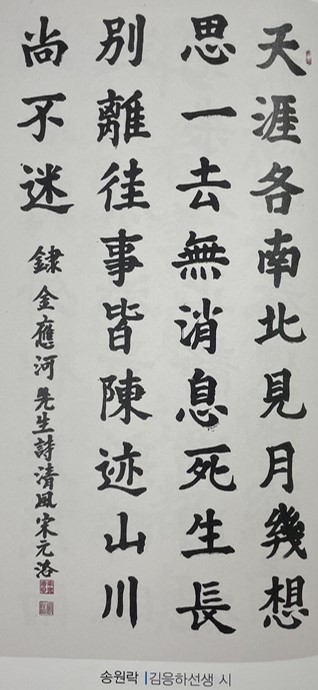 天涯各南北見月幾想
思一去無消息死生長
別離徃事皆陳迹山川
尚不迷
錄金應河先生詩清風宋元洛
송원락 | 김응하선생 시